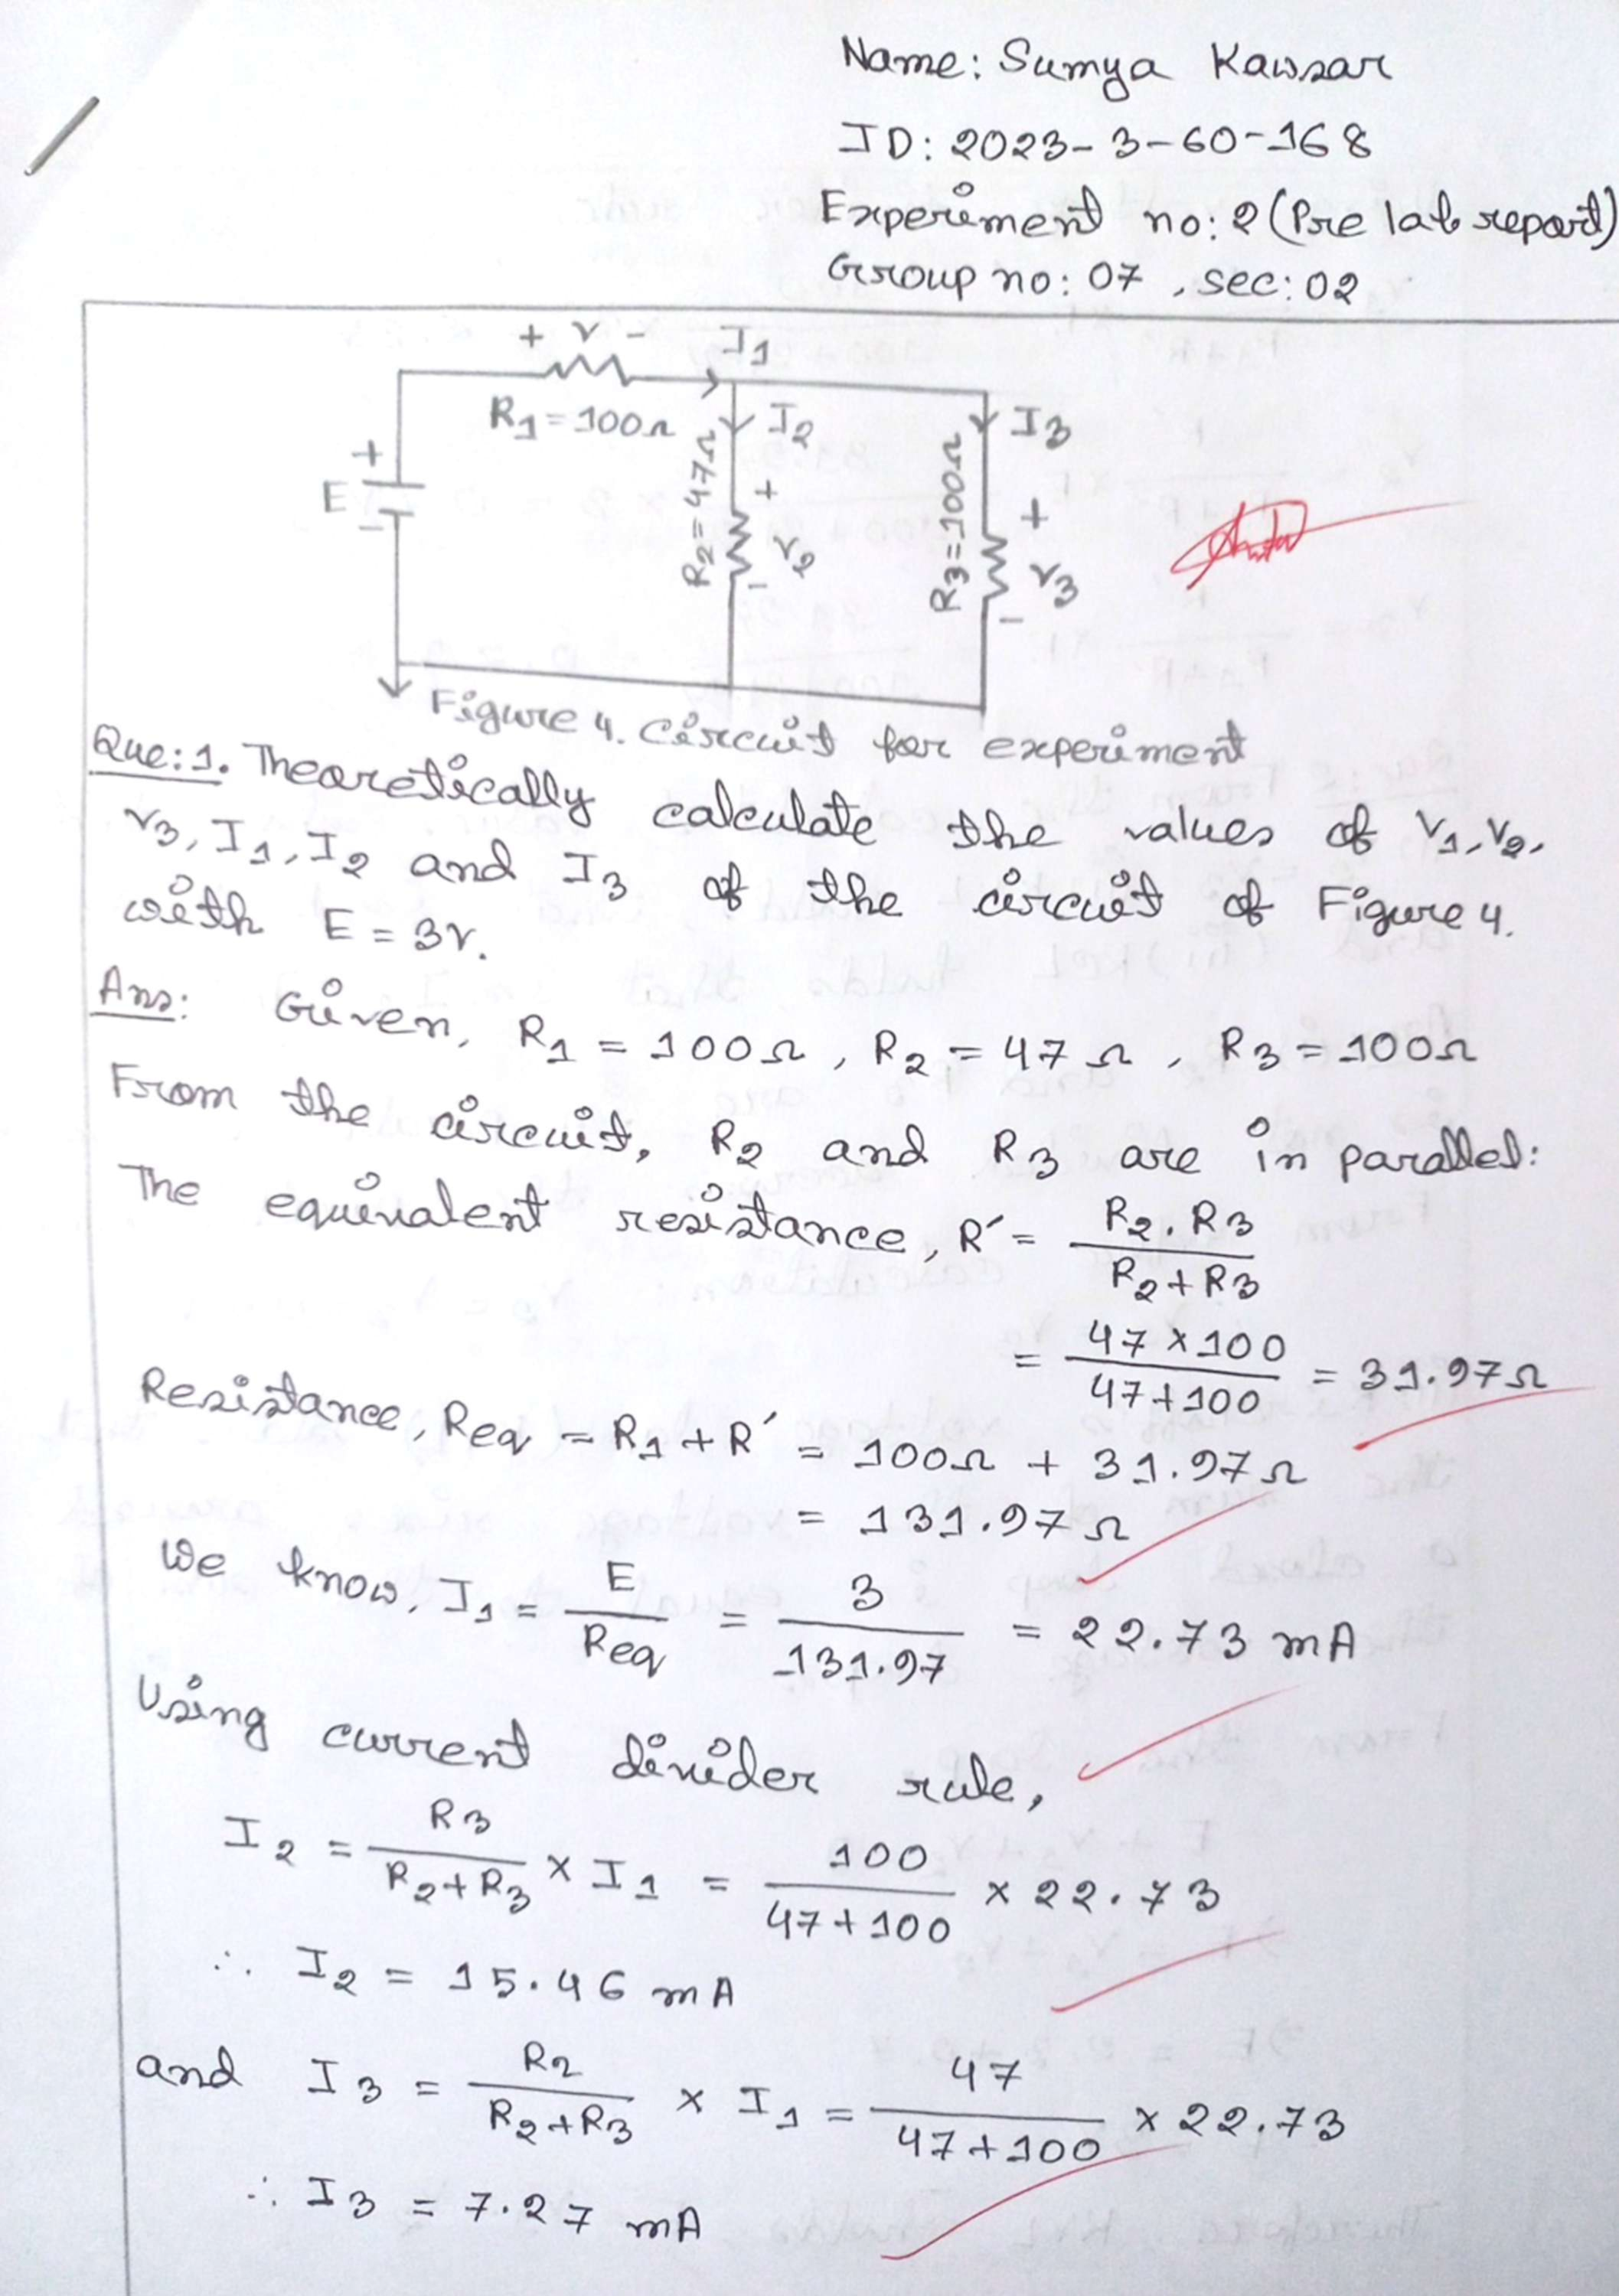 Name: Sumya Kawsar
ID: 2023-3-60-168
Experiment no: 2 (Pre lab report)
Group no: 07, sec: 02
+ V - I1
R1 = 100Ω
I2
I3
+
E
-
R2 = 47Ω
+
V2
-
R3 = 100Ω
+
V3
-
Figure 4. Circuit for experiment
Que: 1. Theoretically calculate the values of V1, V2,
V3, I1, I2 and I3 of the circuit of Figure 4.
with E = 3V.
Ans: Given, R1 = 100Ω, R2 = 47Ω, R3 = 100Ω
From the circuit, R2 and R3 are in parallel:
The equivalent resistance, R′ = R2. R3 / R2 + R3
= 47 × 100 / 47 + 100 = 31.97Ω
Resistance, Req = R1 + R′ = 100Ω + 31.97Ω
= 131.97Ω
We know, I1 = E / Req = 3 / 131.97 = 22.73 mA
Using current divider rule,
I2 = R3 / R2 + R3 × I1 = 100 / 47 + 100 × 22.73
∴ I2 = 15.46 mA
and I3 = R2 / R2 + R3 × I1 = 47 / 47 + 100 × 22.73
∴ I3 = 7.27 mA